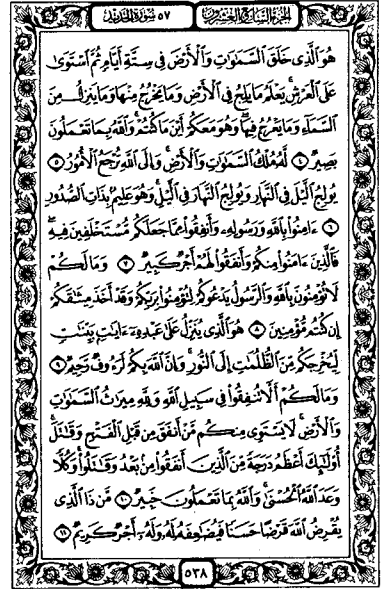 الجزء السابع والعشرون ٥٧ سورة الحديد
هُوَ الَّذِى خَلَقَ السَّمَٰوَٰتِ وَالْأَرْضَ فِى سِتَّةِ أَيَّامٍ ثُمَّ اسْتَوَىٰ
عَلَى الْعَرْشِ يَعْلَمُ مَا يَلِجُ فِى الْأَرْضِ وَمَا يَخْرُجُ مِنْهَا وَمَا يَنزِلُ مِنَ
السَّمَآءِ وَمَا يَعْرُجُ فِيهَا وَهُوَ مَعَكُمْ أَيْنَ مَا كُنتُمْ وَاللَّهُ بِمَا تَعْمَلُونَ
بَصِيرٌ ٤ لَّهُ مُلْكُ السَّمَٰوَٰتِ وَالْأَرْضِ وَإِلَى اللَّهِ تُرْجَعُ الْأُمُورُ ٥
يُولِجُ الَّيْلَ فِى النَّهَارِ وَيُولِجُ النَّهَارَ فِى الَّيْلِ وَهُوَ عَلِيمٌ بِذَاتِ الصُّدُورِ
٦ ءَامِنُوا۟ بِاللَّهِ وَرَسُولِهِۦ وَأَنفِقُوا۟ مِمَّا جَعَلَكُم مُّسْتَخْلَفِينَ فِيهِ
فَالَّذِينَ ءَامَنُوا۟ مِنكُمْ وَأَنفَقُوا۟ لَهُمْ أَجْرٌ كَبِيرٌ ٧ وَمَا لَكُمْ
لَا تُؤْمِنُونَ بِاللَّهِ وَالرَّسُولُ يَدْعُوكُمْ لِتُؤْمِنُوا۟ بِرَبِّكُمْ وَقَدْ أَخَذَ مِيثَٰقَكُمْ
إِن كُنتُم مُّؤْمِنِينَ ٨ هُوَ الَّذِى يُنَزِّلُ عَلَىٰ عَبْدِهِۦٓ ءَايَٰتٍ بَيِّنَٰتٍ
لِّيُخْرِجَكُم مِّنَ الظُّلُمَٰتِ إِلَى النُّورِ وَإِنَّ اللَّهَ بِكُمْ لَرَءُوفٌ رَّحِيمٌ ٩
وَمَا لَكُمْ أَلَّا تُنفِقُوا۟ فِى سَبِيلِ اللَّهِ وَلِلَّهِ مِيرَٰثُ السَّمَٰوَٰتِ
وَالْأَرْضِ لَا يَسْتَوِى مِنكُم مَّنْ أَنفَقَ مِن قَبْلِ الْفَتْحِ وَقَٰتَلَ
أُو۟لَٰٓئِكَ أَعْظَمُ دَرَجَةً مِّنَ الَّذِينَ أَنفَقُوا۟ مِنۢ بَعْدُ وَقَٰتَلُوا۟ وَكُلًّا
وَعَدَ اللَّهُ الْحُسْنَىٰ وَاللَّهُ بِمَا تَعْمَلُونَ خَبِيرٌ ١٠ مَّن ذَا الَّذِى
يُقْرِضُ اللَّهَ قَرْضًا حَسَنًا فَيُضَٰعِفَهُۥ لَهُۥ وَلَهُۥٓ أَجْرٌ كَرِيمٌ ١١
٥٣٨